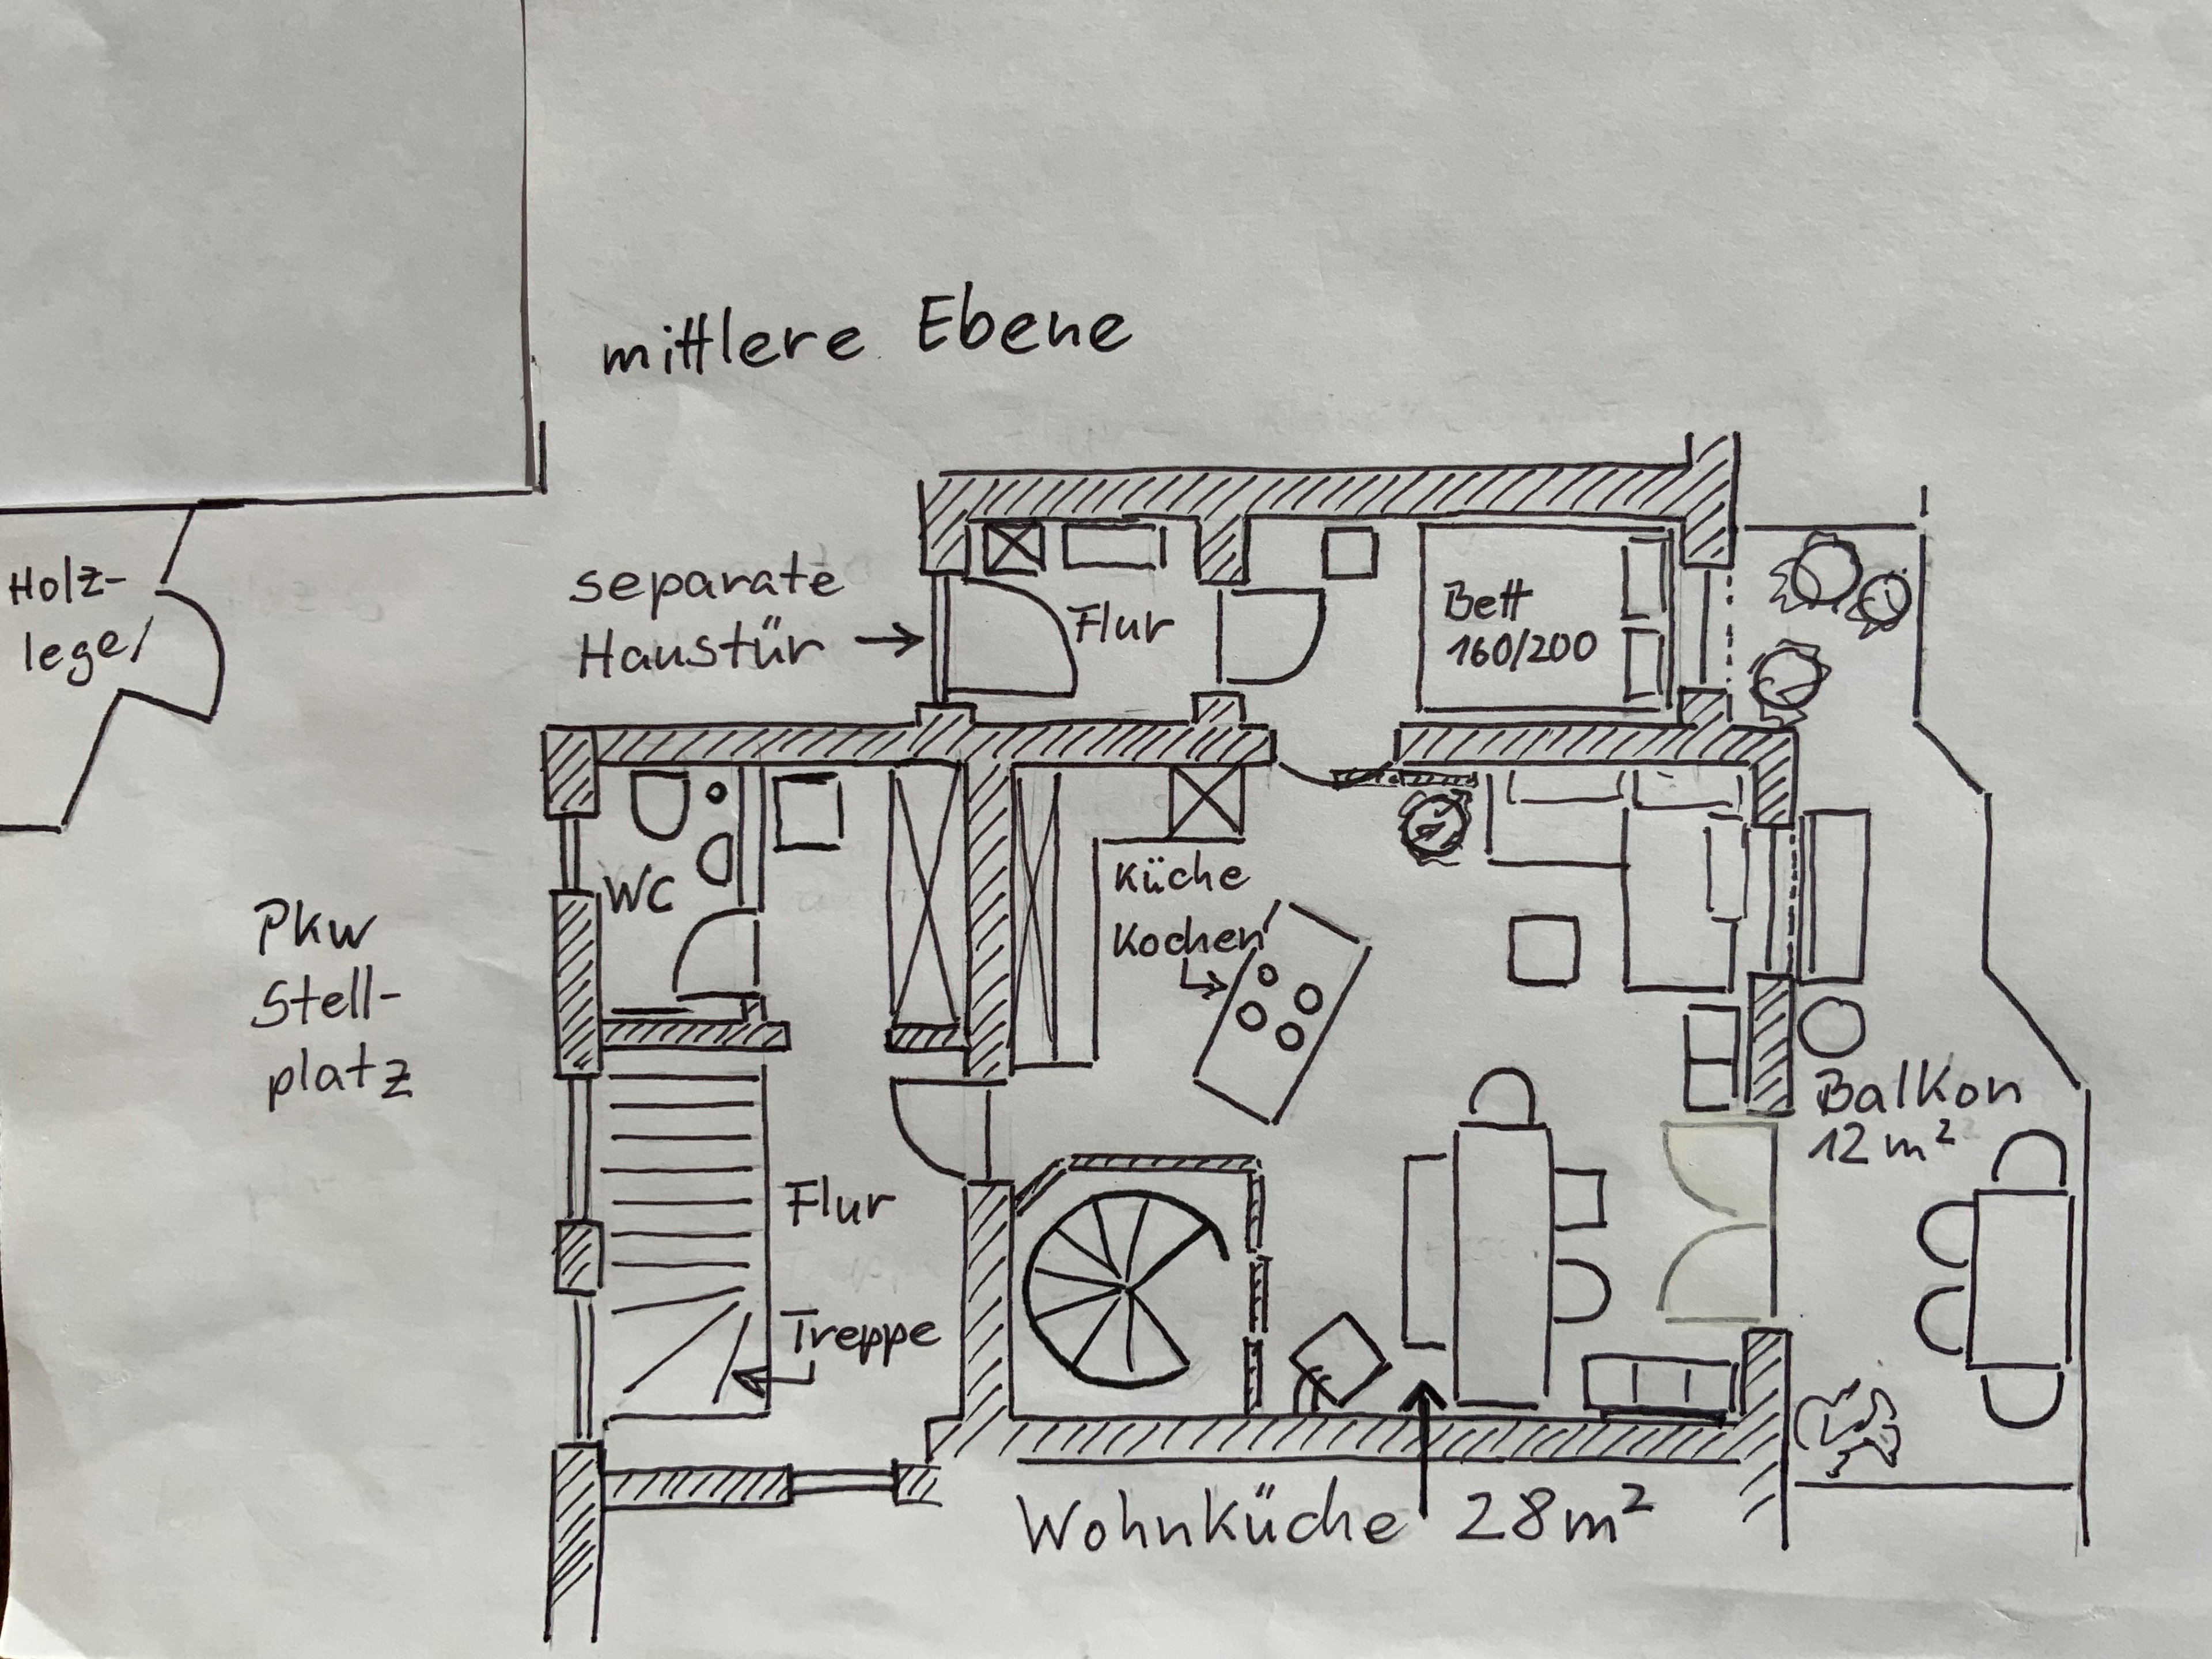 mittlere Ebene
Holz-
lege
separate
Haustür
Flur
Bett
160/200
WC
Küche
Kochen
Pkw
Stell-
platz
Balkon
12m²
Flur
Treppe
Wohnküche 28m²